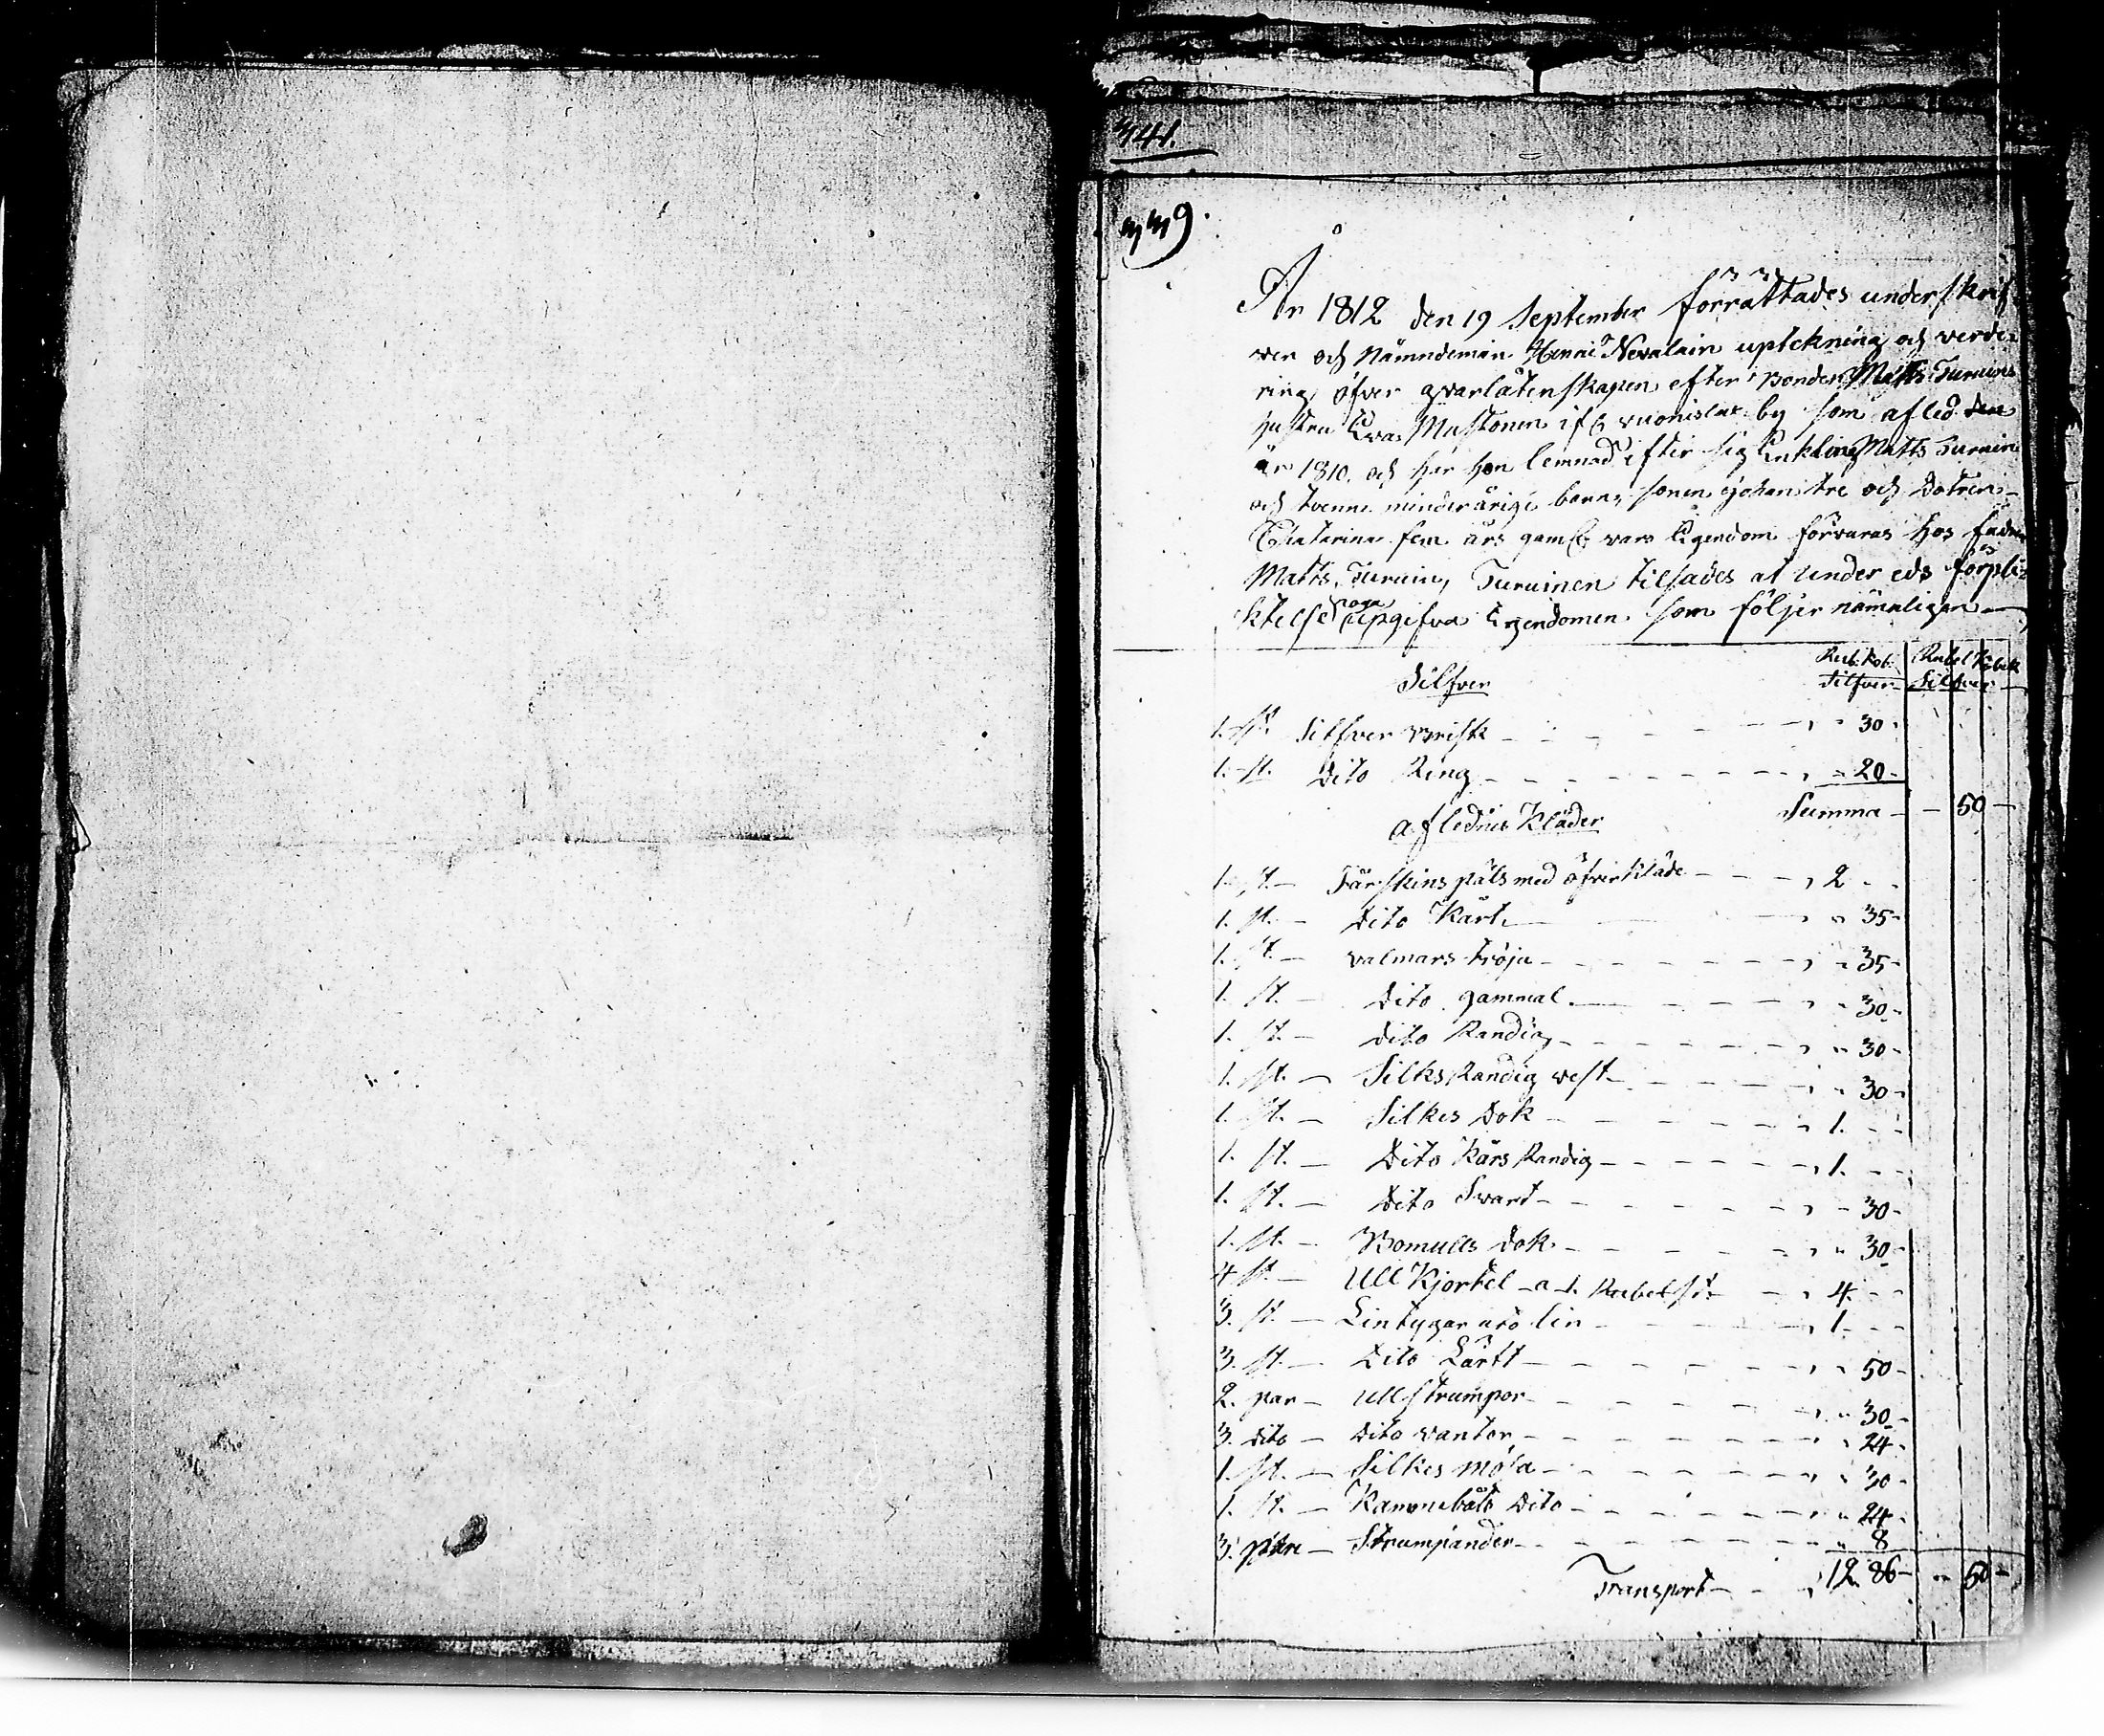 341.
339.
År 1812 den 19 September förrättades underskrif
ver och Nämndeman Henric Nevalain uptekning och verde=
ring öfver qvarlåtenskapen efter Bonden Matts Turuins
hustru Eva Mustonen if Vuonislax by som afled den
år 1810. och har hon lemnad efter sig Enkling Matts Turuin
och tvenne minderårige barn, sonen Johan tre och Dotren
Catarina fem års gaml. vars Egendom förvaras hos fadren
Matts Turuin, Turuinen tilsades at under eds förpli=
ktelse noga upgifva Egendomen som följer nämnligen
Silfver Rub: Kop: Silfver Rubel Kopek Silfver
1. st. Silfver Brisk - - - 30 -
1. st. Dito Ring - - - 20 -
Summa - - 50 -
aflednes Kläder
1. st. - Fårskins päls med öfverkläde - - - 2 - -
1. st. - Dito Kart - 35 -
1. st. - valmars tröja - - - 35 -
1. st. - Dito gammal - - - 30 -
1. st. - Dito Randig - - - 30 -
1. st. - Silks Randig vest - - - 30 -
1. st. - Silkes Dok - - - 1. - -
1. st. - Dito Kärs Randig - - - 1. - -
1. st. - Dito Svart - - - 30 -
1. st. - Bomulls Dok - - - 30 -
4 st. - Ull Kjortel - a 1. Rubel st - - 4 - -
3. st. - Lintygar utö lin - - - 1. - -
3. st. - Dito Lärft - - - 50 -
2. par - Ull strumpor - - - 30 -
3. dito - Dito vantor - - - 24 -
1. st. - Silkes mösa - - - 30 -
1. st. - Dito - - - 24 -
3. påre - Strumpander - - - 8
Transport - - 12. 86 - - 50 -